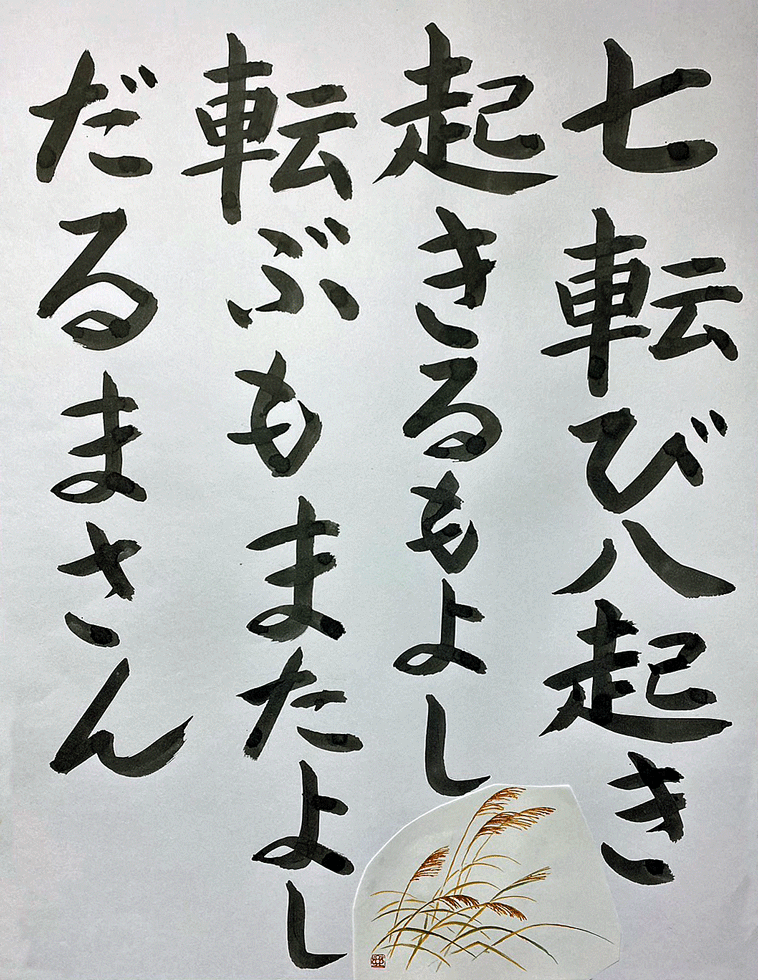 七転び八起き
起きるもよし
転ぶもまたよし
だるまさん